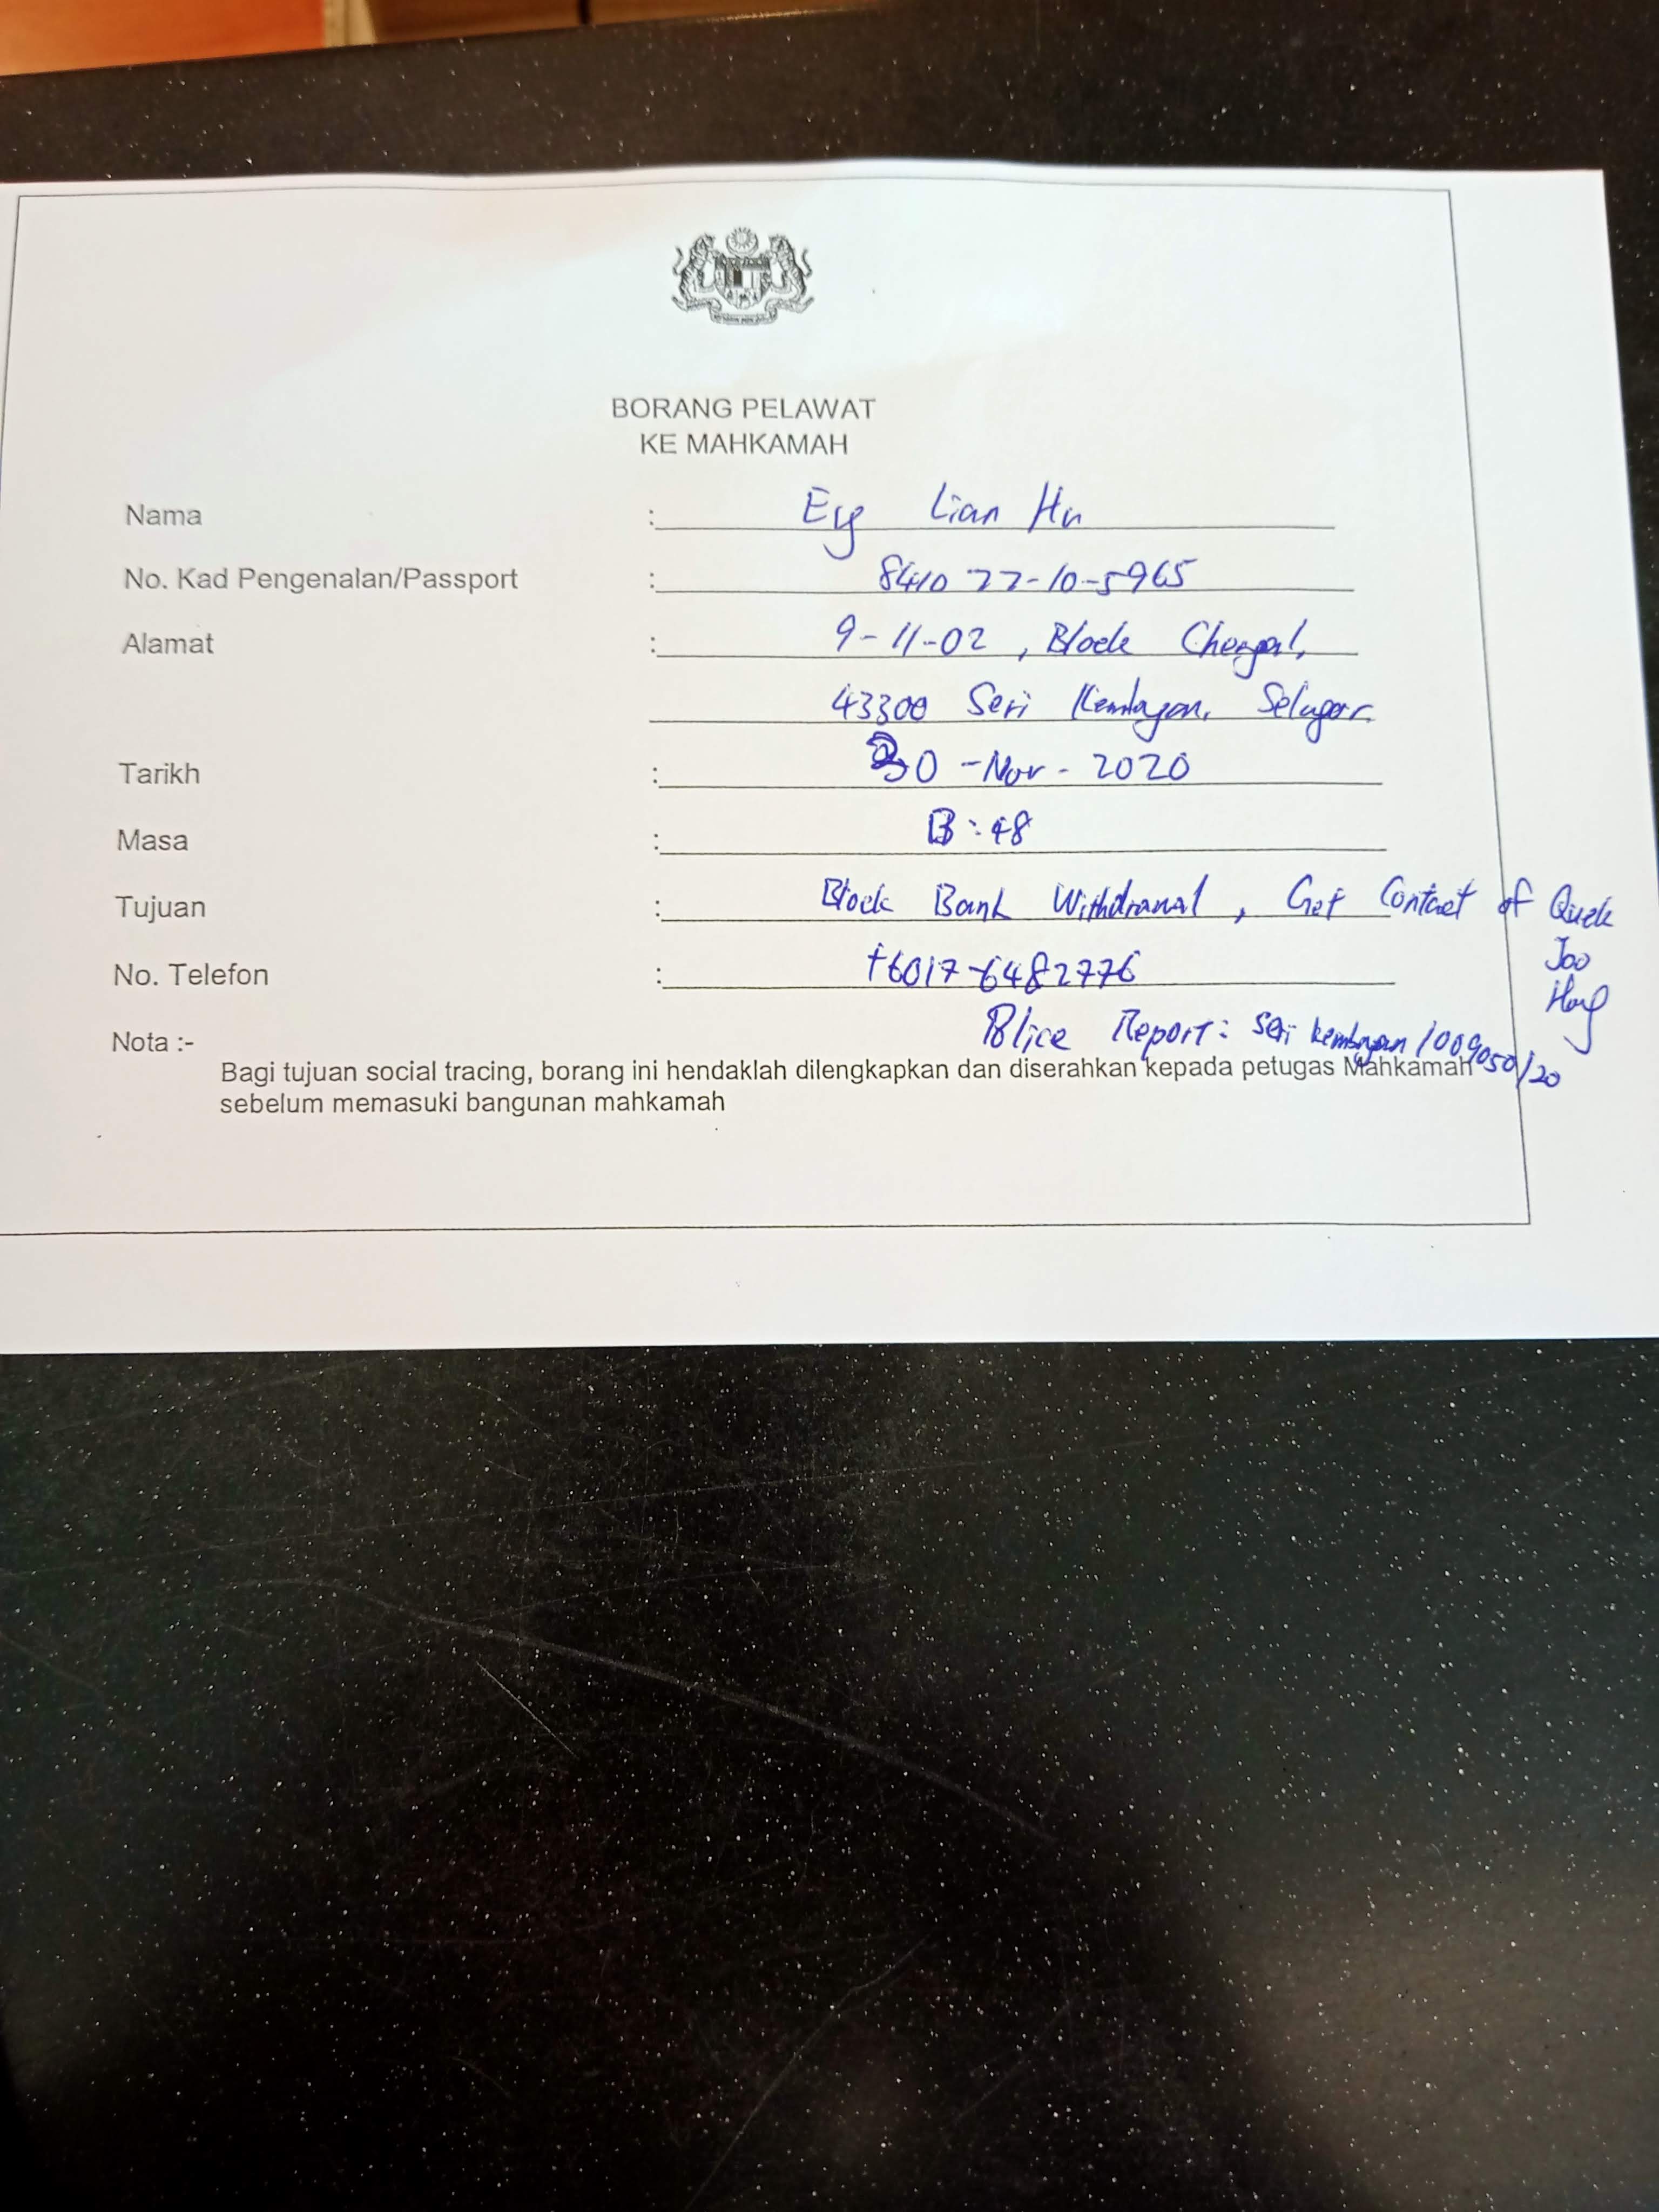 BORANG PELAWAT
KE MAHKAMAH
Nama : Lian
No. Kad Pengenalan/Passport : 841022-10-5965
Alamat : 9-11-02, Block
43300 Seri Kembagan, Selagor
Tarikh : 30-Nov-2020
Masa : :48
Tujuan : Block Bank Withdrawal, Get Contact of Quek
Joo
No. Telefon : +6017-6482776
Police Report: Seri Kembagan/009050/20
Nota :-
Bagi tujuan social tracing, borang ini hendaklah dilengkapkan dan diserahkan kepada petugas Mahkamah
sebelum memasuki bangunan mahkamah